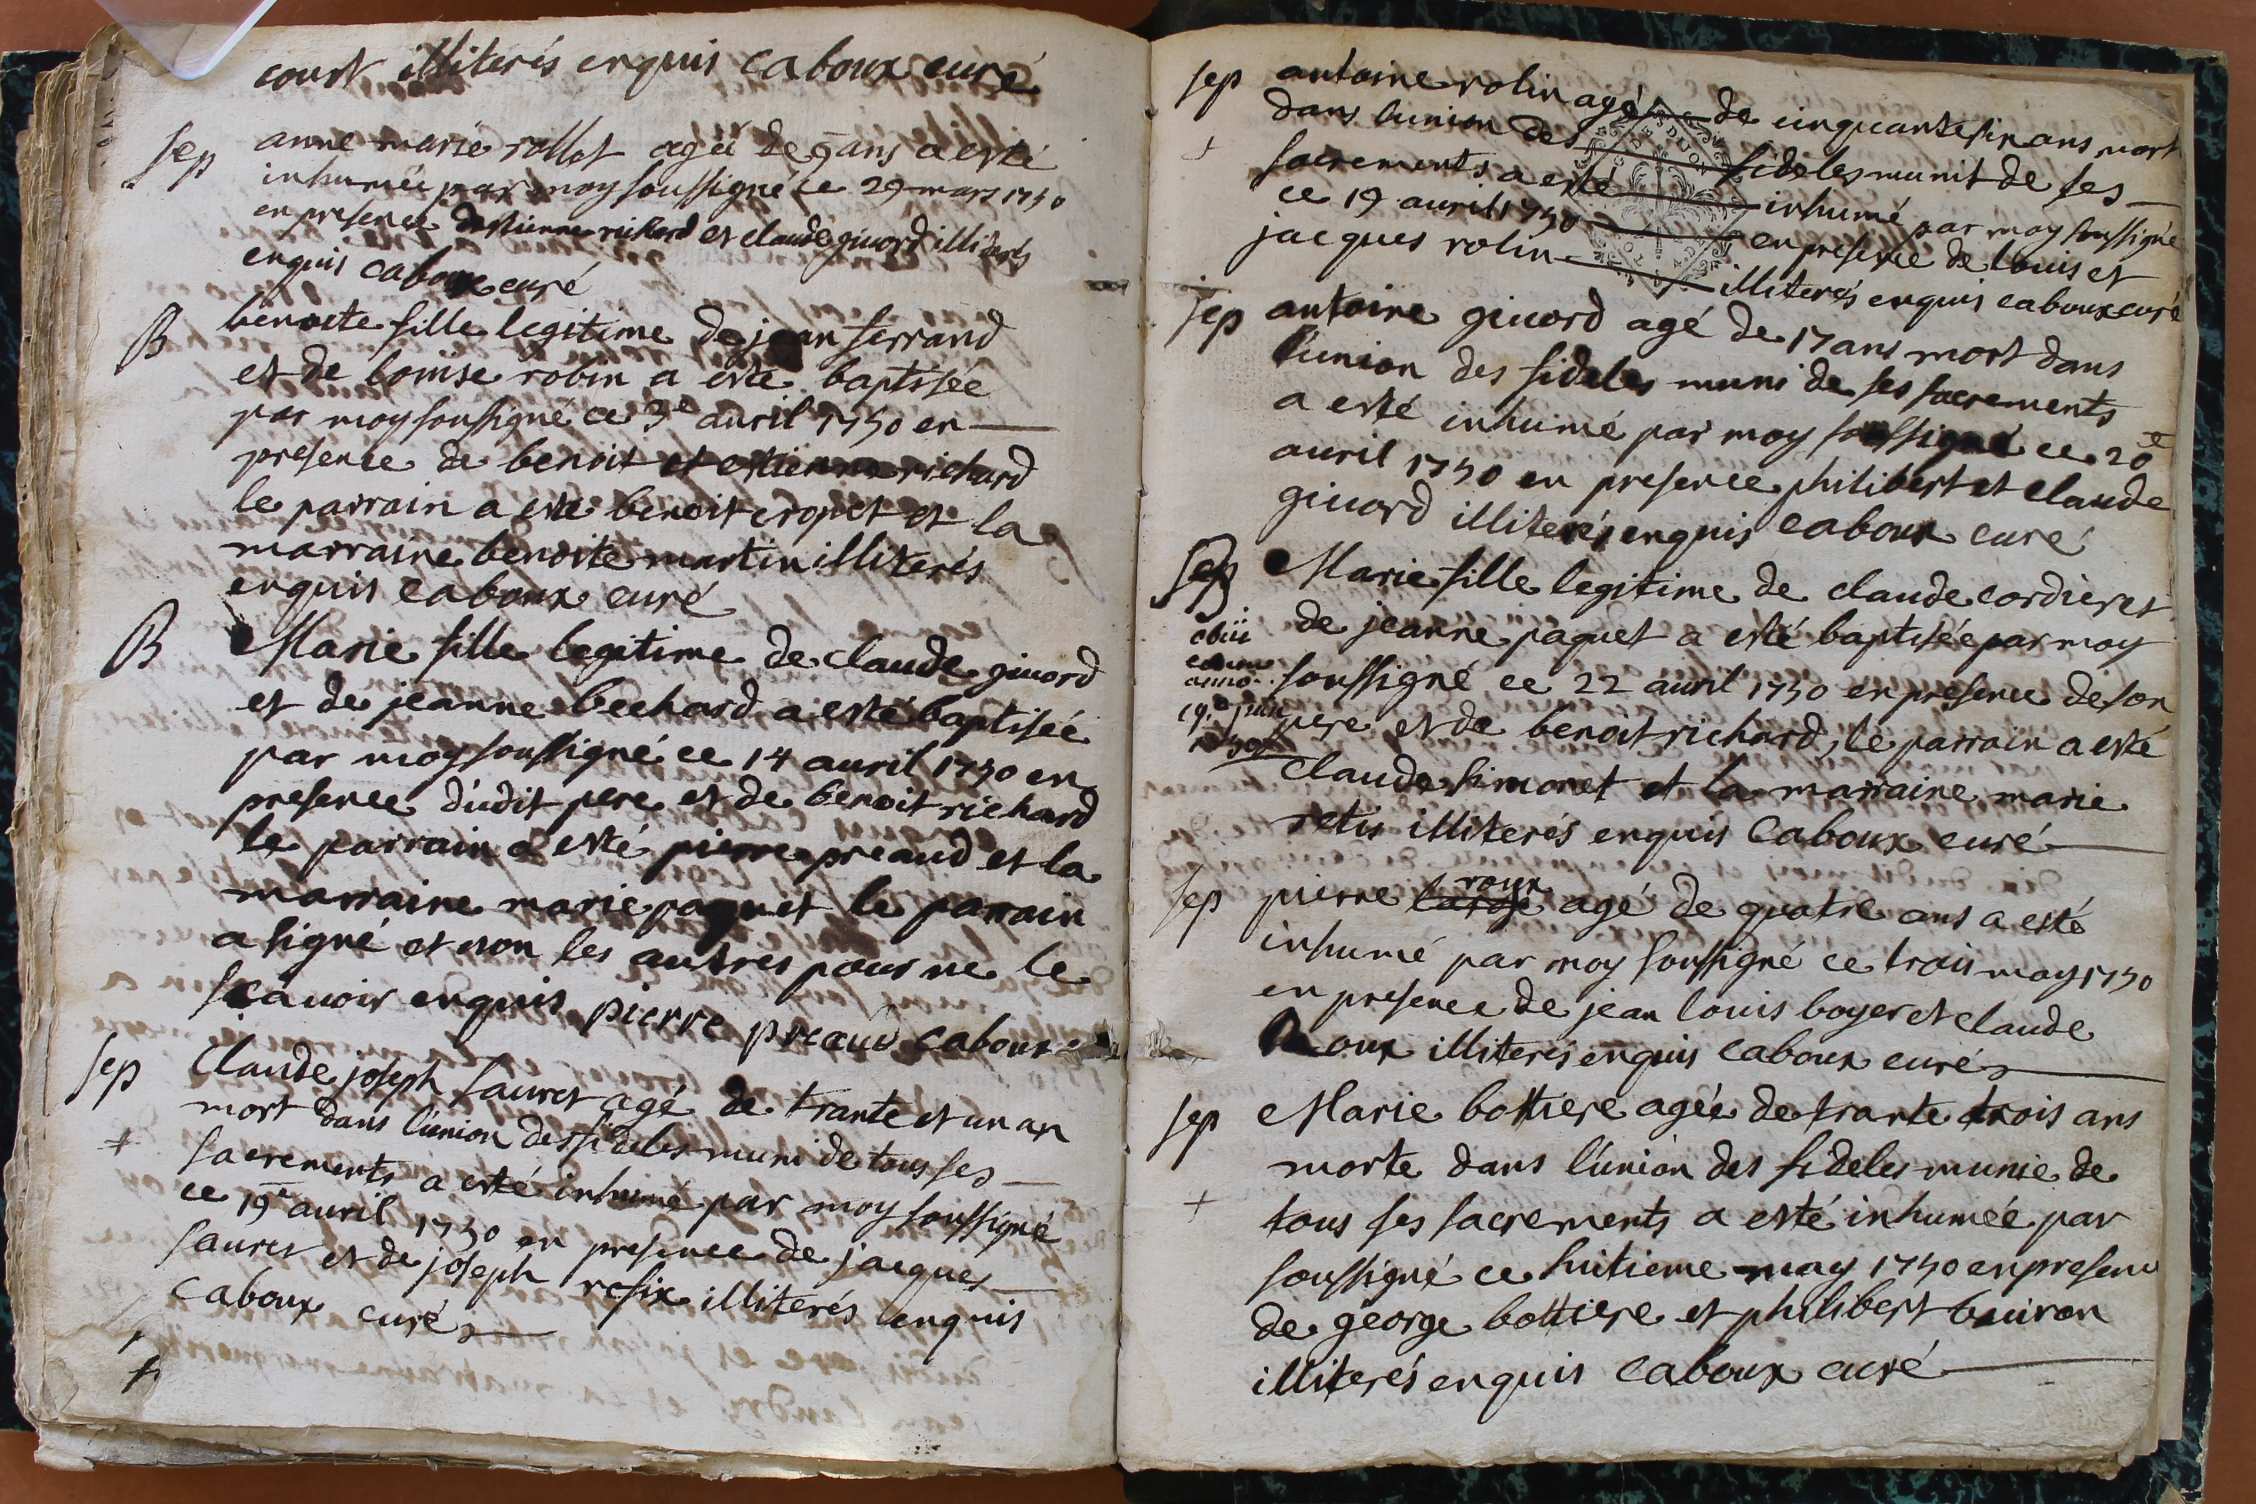 court illiterés enquis caboux curé
sep anne marie rollet agéé de 9 ans a esté
inhumée par moy soussigné ce 29 mars 1730
en presence destienne richard et claude giuord illiterés
enquis caboux curé
B benoite fille legitime de jean ferrand
et de loüise robin a esté baptisée
par moy soussigné ce 3e auril 1730 en
presence de benoit et estienne richard
le parrain a esté benoit cropet et la
marraine benoite martin illiterés
enquis caboux curé
B Marie fille legitime de claude giuord
et de jeanne bechard a esté baptisée
par moy soussigné ce 14 auril 1730 en
presence dudit pere et de benoit richard
le parrain a esté pierre preaud et la
marraine marie paquet le parrain
a signé et non les autres pour ne le
scauoir enquis pierre preaud caboux
sep Claude joseph sauret agé de trante et un an
mort dans l'union des fideles muni de tous ses
+ sacrements a esté inhumé par moy soussigné
ce 19e auril 1730 en presence de jacques
sauret et de joseph refix illiterés enquis
caboux curé
+
sep antoine rolin agé de cinquante six ans mort
dans lunion des fideles munit de ses
+ sacrements a esté inhumé par moy soussigné
ce 19 auril 1730 en presence de louis et
jacques rolin illiterés enquis caboux curé
sep antoine giuord agé de 17 ans mort dans
l'union des fideles muni de ses sacrements
a esté inhumé par moy soussigné ce 20e
auril 1730 en presence philibert et claude
giuord illiterés enquis caboux curé
Marie fille legitime de claude cordier et
de jeanne paquet a esté baptisée par moy
obiit
anno
soussigné ce 22 auril 1730 en presence de son
19e juin
pere et de benoit richard, le parrain a esté
claude simonet et la marraine marie
retis illiterés enquis caboux curé
roux
sep pierre agé de quatre ans a esté
inhumé par moy soussigné ce trois may 1730
en presence de jean louis boyer et claude
Roux illiterés enquis caboux curé
sep Marie bottiere agée de trante trois ans
morte dans l'union des fideles munie de
+ tous ses sacrements a esté inhumée par
soussigné ce huitieme may 1730 en presence
de george bottiere et philibert buiron
illiterés enquis caboux curé